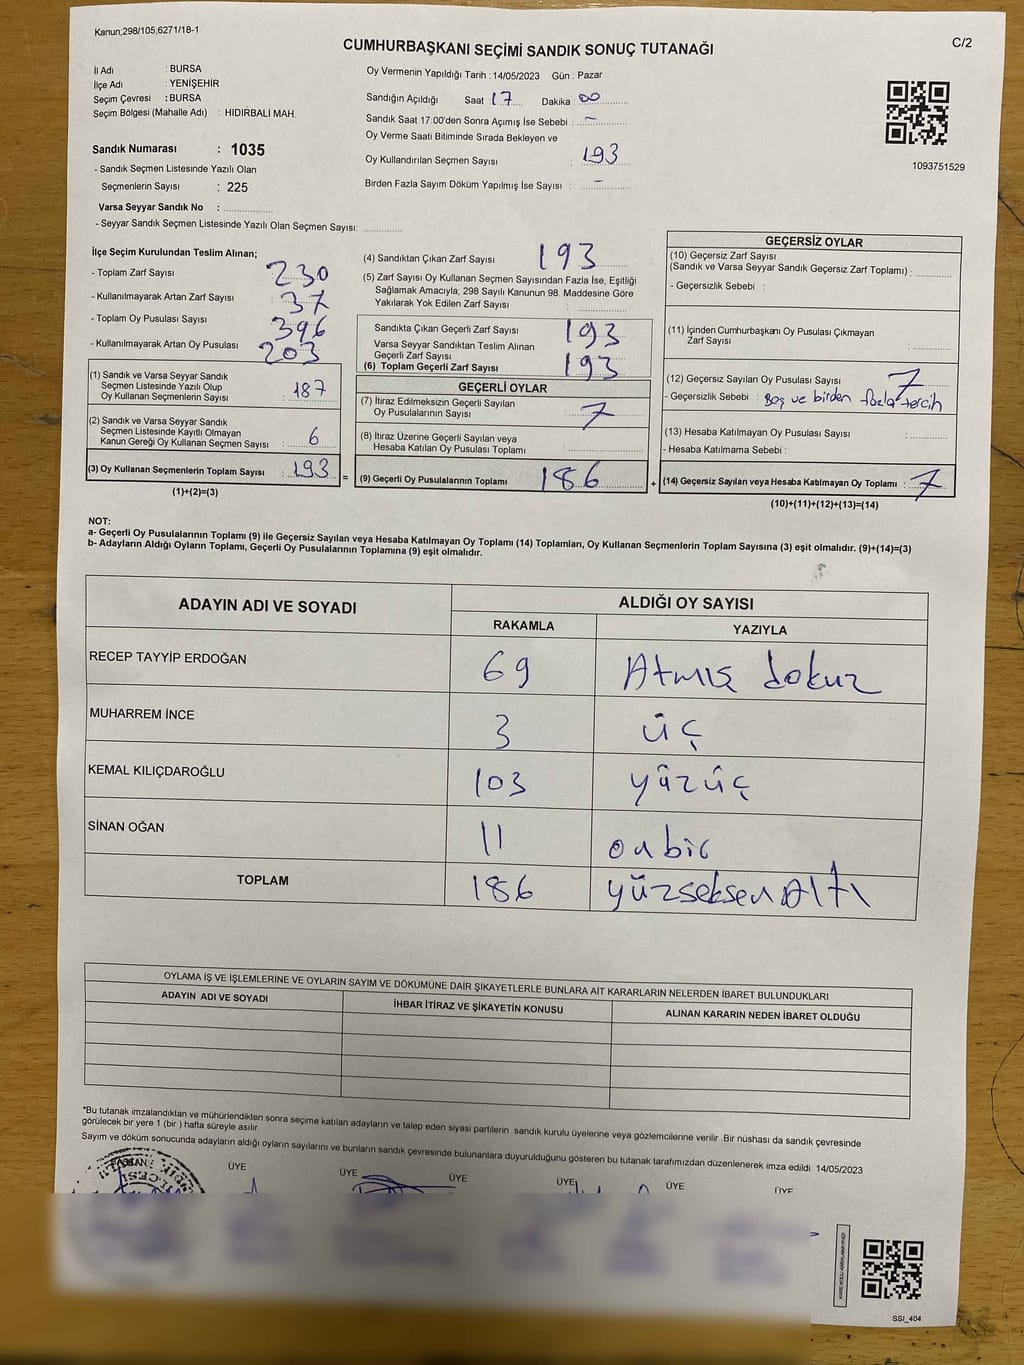 Kanun;298/105;6271/18-1
C/2
CUMHURBAŞKANI SEÇİMİ SANDIK SONUÇ TUTANAĞI
İl Adı : BURSA
İlçe Adı : YENİŞEHİR
Seçim Çevresi : BURSA
Seçim Bölgesi (Mahalle Adı) : HIDIRBALİ MAH.
Sandık Numarası : 1035
- Sandık Seçmen Listesinde Yazılı Olan
Seçmenlerin Sayısı : 225
Varsa Seyyar Sandık No :
- Seyyar Sandık Seçmen Listesinde Yazılı Olan Seçmen Sayısı:
Oy Vermenin Yapıldığı Tarih : 14/05/2023 Gün : Pazar
Sandığın Açıldığı Saat 17 Dakika : 00
Sandık Saat 17:00'den Sonra Açımış İse Sebebi : -
Oy Verme Saati Bitiminde Sırada Bekleyen ve
Oy Kullandırılan Seçmen Sayısı : 193
Birden Fazla Sayım Döküm Yapılmış İse Sayısı : -
1093751529
İlçe Seçim Kurulundan Teslim Alınan;
- Toplam Zarf Sayısı : 230
- Kullanılmayarak Artan Zarf Sayısı : 37
- Toplam Oy Pusulası Sayısı : 396
- Kullanılmayarak Artan Oy Pusulası : 203
(1) Sandık ve Varsa Seyyar Sandık
Seçmen Listesinde Yazılı Olup
Oy Kullanan Seçmenlerin Sayısı : 187
(2) Sandık ve Varsa Seyyar Sandık
Seçmen Listesinde Kayıtlı Olmayan
Kanun Gereği Oy Kullanan Seçmen Sayısı : 6
(3) Oy Kullanan Seçmenlerin Toplam Sayısı : 193 =
(1)+(2)=(3)
(4) Sandıktan Çıkan Zarf Sayısı : 193
(5) Zarf Sayısı Oy Kullanan Seçmen Sayısından Fazla İse, Eşitliği
Sağlamak Amacıyla, 298 Sayılı Kanunun 98. Maddesine Göre
Yakılarak Yok Edilen Zarf Sayısı :
Sandıkta Çıkan Geçerli Zarf Sayısı : 193
Varsa Seyyar Sandıktan Teslim Alınan
Geçerli Zarf Sayısı :
(6) Toplam Geçerli Zarf Sayısı : 193
GEÇERLİ OYLAR
(7) İtiraz Edilmeksizin Geçerli Sayılan
Oy Pusulalarının Sayısı : 7
(8) İtiraz Üzerine Geçerli Sayılan veya
Hesaba Katılan Oy Pusulası Toplamı :
(9) Geçerli Oy Pusulalarının Toplamı : 186 +
GEÇERSİZ OYLAR
(10) Geçersiz Zarf Sayısı
(Sandık ve Varsa Seyyar Sandık Geçersiz Zarf Toplamı) :
- Geçersizlik Sebebi :
(11) İçinden Cumhurbaşkanı Oy Pusulası Çıkmayan
Zarf Sayısı :
(12) Geçersiz Sayılan Oy Pusulası Sayısı : 7
- Geçersizlik Sebebi : Boş ve birden fazla tercih
(13) Hesaba Katılmayan Oy Pusulası Sayısı :
- Hesaba Katılmama Sebebi :
(14) Geçersiz Sayılan veya Hesaba Katılmayan Oy Toplamı : 7
(10)+(11)+(12)+(13)=(14)
NOT:
a- Geçerli Oy Pusulalarının Toplamı (9) ile Geçersiz Sayılan veya Hesaba Katılmayan Oy Toplamı (14) Toplamları, Oy Kullanan Seçmenlerin Toplam Sayısına (3) eşit olmalıdır. (9)+(14)=(3)
b- Adayların Aldığı Oyların Toplamı, Geçerli Oy Pusulalarının Toplamına (9) eşit olmalıdır.
ADAYIN ADI VE SOYADI
ALDIĞI OY SAYISI
RAKAMLA YAZIYLA
RECEP TAYYİP ERDOĞAN 69 Atmış dokuz
MUHARREM İNCE 3 üç
KEMAL KILIÇDAROĞLU 103 yüzüç
SİNAN OĞAN 11 onbir
TOPLAM 186 yüzseksenAltı
OYLAMA İŞ VE İŞLEMLERİNE VE OYLARIN SAYIM VE DÖKÜMÜNE DAİR ŞİKAYETLERLE BUNLARA AİT KARARLARIN NELERDEN İBARET BULUNDUKLARI
ADAYIN ADI VE SOYADI İHBAR İTİRAZ VE ŞİKAYETİN KONUSU ALINAN KARARIN NEDEN İBARET OLDUĞU
*Bu tutanak imzalandıktan ve mühürlendikten sonra seçime katılan adayların ve talep eden siyasi partilerin sandık kurulu üyelerine veya gözlemcilerine verilir. Bir nüshası da sandık çevresinde
görülecek bir yere 1 (bir ) hafta süreyle asılır.
Sayım ve döküm sonucunda adayların aldığı oyların sayılarını ve bunların sandık çevresinde bulunanlara duyurulduğunu gösteren bu tutanak tarafımızdan düzenlenerek imza edildi. 14/05/2023
BAŞKAN ÜYE ÜYE ÜYE ÜYE ÜYE ÜYE
SSI_404